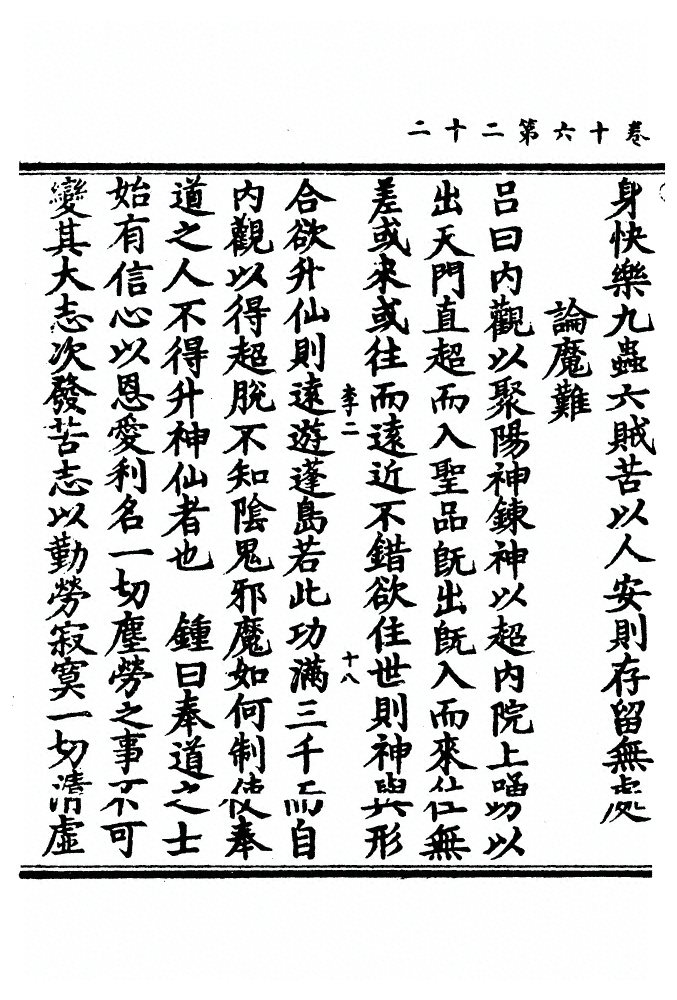 卷十六第二十二
身快樂九蟲六賊苦以人安則存留無處
論魔難
呂曰內觀以聚陽神鍊神以超內院上踴以
出天門直超而入聖品旣出旣入而來往無
差或來或往而遠近不錯欲住世則神與形
李二 十八
合欲升仙則遠遊蓬島若此功滿三千而自
內觀以得超脫不知陰鬼邪魔如何制使奉
道之人不得升神仙者也 鍾曰奉道之士
始有信心以恩愛利名一切塵勞之事不可
變其大志次發苦志以勤勞寂寞一切清虛